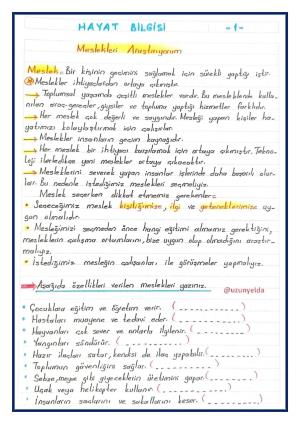 HAYAT BİLGİSİ -1-
Meslekleri Araştırıyorum
Meslek: Bir kişinin geçimini sağlamak için sürekli yaptığı iştir.
Meslekler ihtiyaçlardan ortaya çıkmıştır.
Toplumsal yaşamda çeşitli meslekler vardır. Bu mesleklerde kulla-
nılan araç-gereçler, giysiler ve topluma yaptığı hizmetler farklıdır.
Her meslek çok değerli ve saygındır. Mesleği yapan kişiler ha-
yatımızı kolaylaştırmak için çalışırlar.
Meslekler insanların geçim kaynağıdır.
Her meslek bir ihtiyacı karşılamak için ortaya çıkmıştır. Tekno-
loji ilerledikçe yeni meslekler ortaya çıkacaktır.
Mesleklerini severek yapan insanlar işlerinde daha başarılı olur-
lar. Bu nedenle istediğimiz meslekleri seçmeliyiz.
Meslek seçerken dikkat etmemiz gerekenler:
Seçeceğimiz meslek kişiliğimize, ilgi ve yeteneklerimize uy-
gun olmalıdır.
Mesleğimizi seçmeden önce hangi eğitimi almamız gerektiğini,
mesleklerin çalışma ortamlarını, bize uygun olup olmadığını araştır-
malıyız.
İstediğimiz mesleğin çalışanları ile görüşmeler yapmalıyız.
Aşağıda özellikleri verilen meslekleri yazınız. @uzunyelda
Çocuklara eğitim ve öğretim verir. (___________)
Hastaları muayene ve tedavi eder. (___________)
Hayvanları çok sever ve onlarla ilgilenir. (___________)
Yangınları söndürür. (___________)
Hazır ilaçları satar, kendisi de ilaç yapabilir. (___________)
Toplumun güvenliğini sağlar. (___________)
Sebze, meyve gibi yiyeceklerin üretimini yapar. (___________)
Uçak veya helikopter kullanır. (___________)
İnsanların saçlarını ve sakallarını keser. (___________)